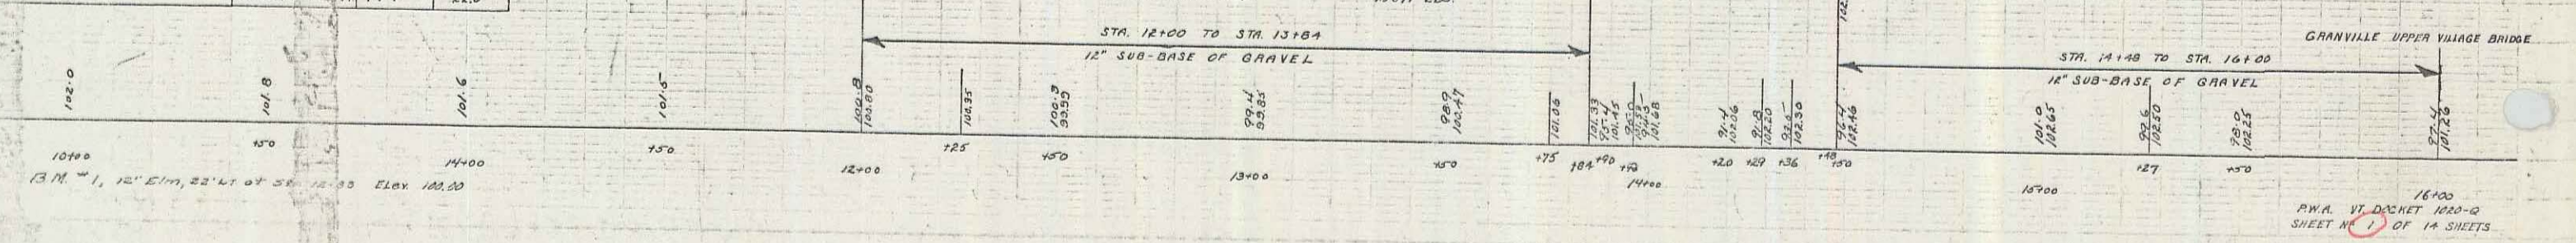 STA. 12+00 TO STA. 13+84
12" SUB-BASE OF GRAVEL
GRANVILLE UPPER VILLAGE BRIDGE
STA. 14+48 TO STA. 16+00
12" SUB-BASE OF GRAVEL
102.0
101.8
101.6
101.5
100.8
100.80
100.95
100.3
99.99
99.4
99.85
98.9
100.47
101.06
101.33
95.4
101.45
101.68
91.4
102.06
91.8
102.20
102.30
96.4
102.46
101.0
102.65
99.6
102.50
98.0
102.25
97.4
101.26
10+00
+50
14+00
+50
12+00
+25
+50
13+00
+50
+75
+84
+90
14+00
+20
+29
+36
+48
+50
15+00
+27
+50
16+00
B.M. #1, 12" Elm, 22' LT of Elev. 100.00
P.W.A. VT. DOCKET 1020-Q
SHEET No 1 OF 14 SHEETS